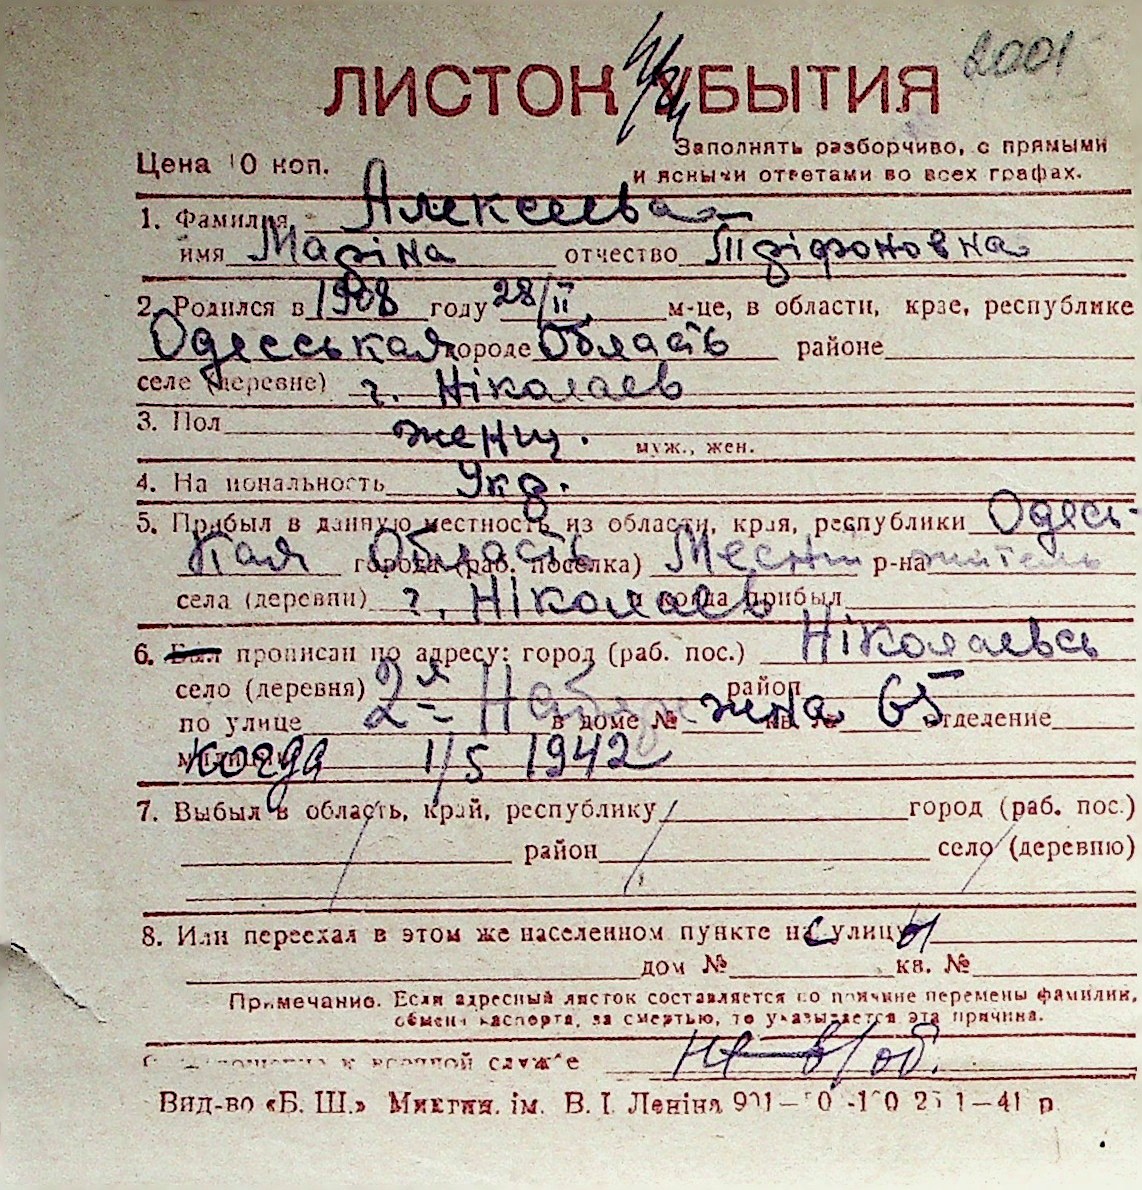 2001
ЛИСТОК УБЫТИЯ
Заполнять разборчиво, с прямыми
Цена 10 коп.
и ясными ответами во всех графах.
1. Фамилия Алексеева
имя Маріна отчество Тріфоновна
2. Родился в 1908 году 28/II м-це, в области, крае, республике
Одесськая городе Область районе
селе (деревне) г. Ніколаев
3. Пол женщ. муж., жен.
4. Национальность Укр.
5. Прибыл в данную местность из области, края, республики Одесь-
кая Область города (раб. поселка) Месний р-на житель
села (деревни) г. Ніколаев когда прибыл
6. Был прописан по адресу: город (раб. пос.) Ніколаевсь
село (деревня) район
по улице 2-я Набережна в доме № кв. № 65 отделение
милиции когда 1/5 1942
7. Выбыл в область, край, республику город (раб. пос.)
район село (деревню)
8. Или переехал в этом же населенном пункте на с улицы
дом № кв. №
Примечание. Если адресный листок составляется по причине перемены фамилии,
обмена паспорта, за смертью, то указывается эта причина.
к военной службе не в/об.
Вид-во «Б. Ш.» Микѓия. ім. В. І. Леніна